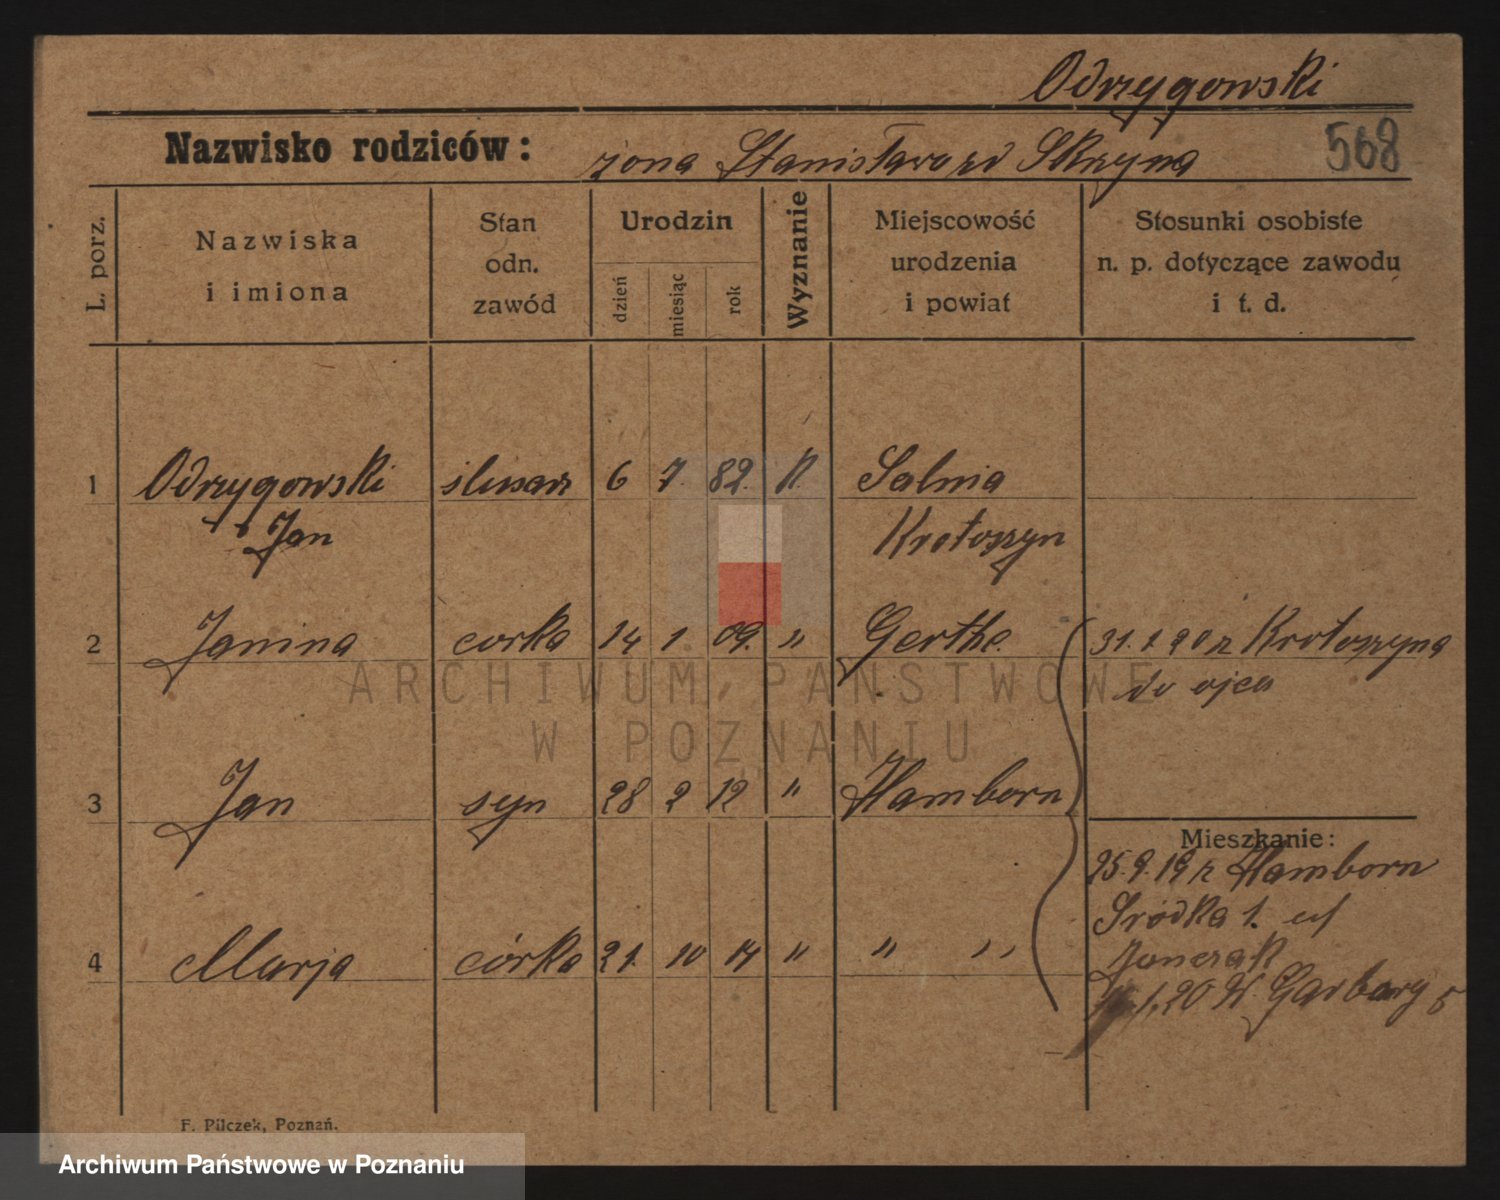 Odrzygowski
Nazwisko rodziców: żona Stanisława zd Skrzyna 568
L. porz.
Nazwiska
i imiona
Stan
odn.
zawód
Urodzin
dzień miesiąc rok
Wyznanie
Miejscowość
urodzenia
i powiat
Stosunki osobiste
n. p. dotyczące zawodu
i t. d.
1 Odrzygowski ślusarz 6 7. 82. K. Salnia
Jan Krotoszyn
2 Janina corka 14 1 09. " Gerthe. 31.1.20 z Krotoszyna
do ojca
ARCHIWUM PAŃSTWOWE
W POZNANIU
3 Jan syn 28 2 12 " Hamborn
Mieszkanie:
25.9.19 z Hamborn
Śródka 1. u/
4 Marja córka 21. 10 14 " " "
Janczak
1,20 W. Garbary 5
F. Pilczek, Poznań.
Archiwum Państwowe w Poznaniu